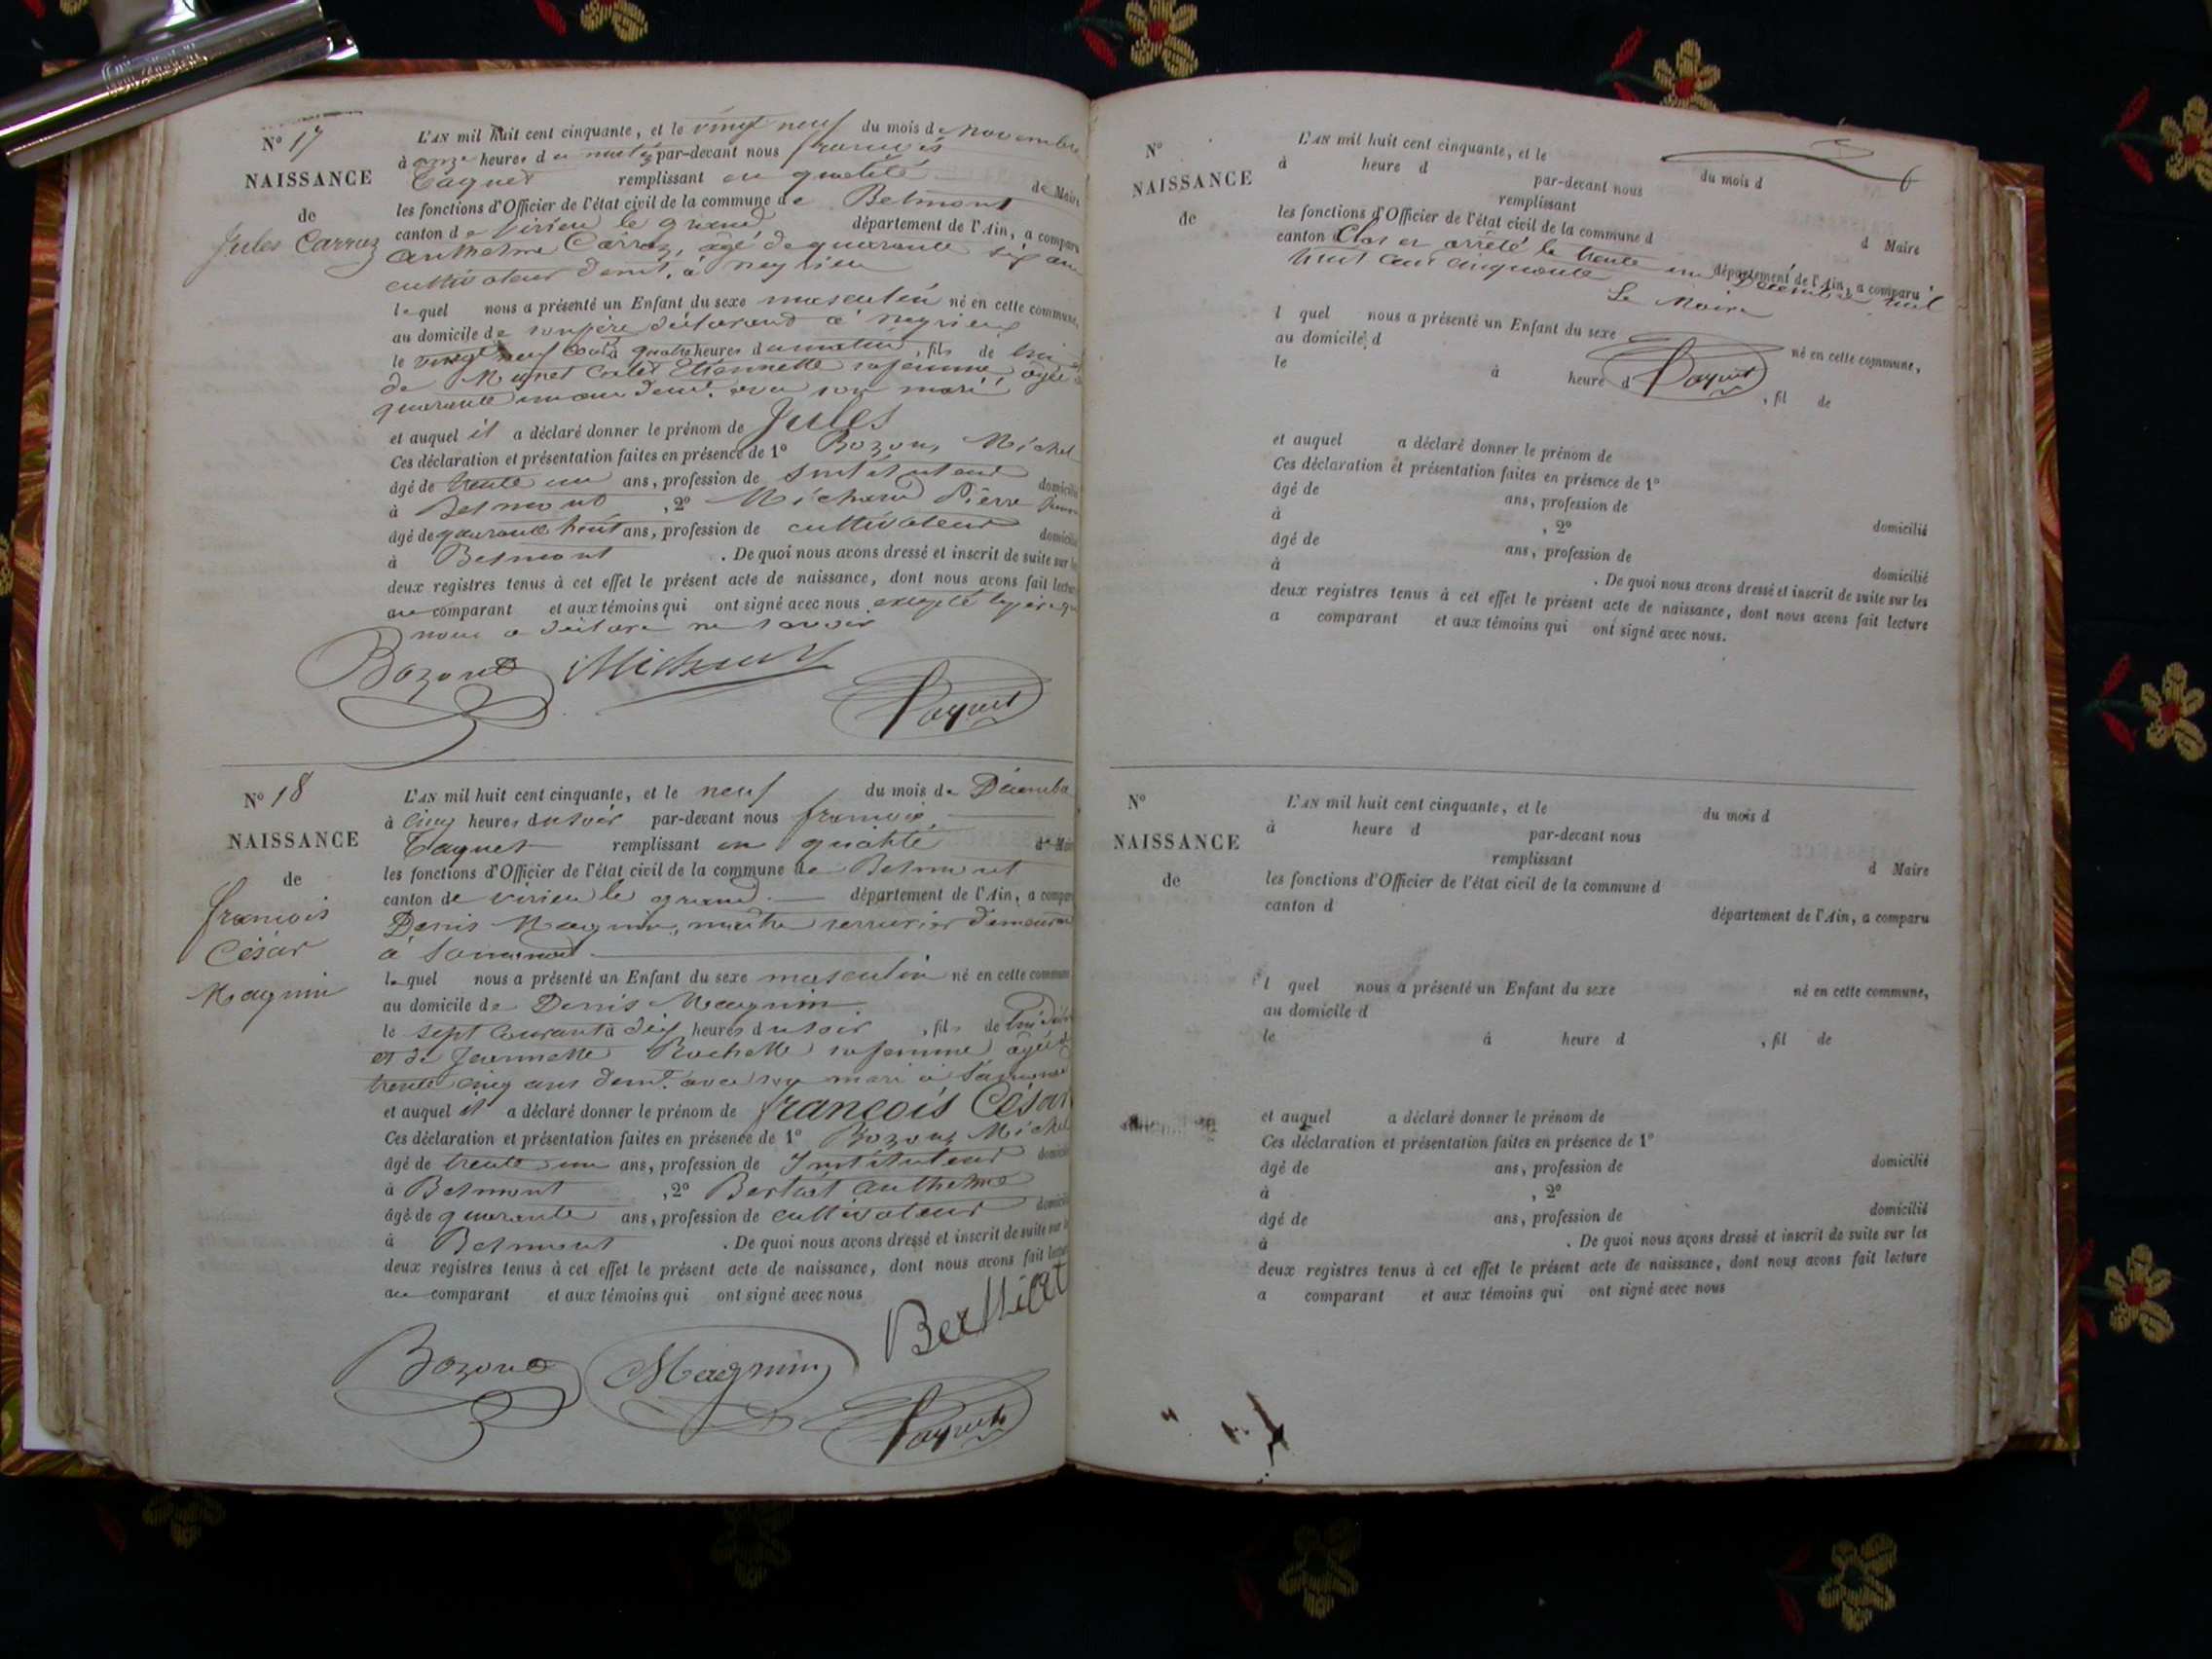 N° 17
NAISSANCE
de
Jules Carraz
L'AN mil huit cent cinquante, et le vingt neuf du mois de Novembre
à onze heures du matin par-devant nous françois
Paquet remplissant en qualité de Maire
les fonctions d'Officier de l'état civil de la commune de Belmont
canton de Virieu le grand département de l'Ain, a comparu
Anthelme Carraz, agé de quarante six ans
cultivateur demt. à
lequel nous a présenté un Enfant du sexe masculin né en cette commune,
au domicile de son père déclarant à
le vingt neuf courant à quatre heures du matin, fils de lui
de Etiennette sa femme agée
quarante un ans demt. avec son mari
et auquel il a déclaré donner le prénom de Jules
Ces déclaration et présentation faites en présence de 1° Bozon, Michel
âgé de trente un ans, profession de Instituteur domicilié
à Belmont, 2° Michaud Pierre
âgé de quarante huit ans, profession de cultivateur domicilié
à Belmont. De quoi nous avons dressé et inscrit de suite sur les
deux registres tenus à cet effet le présent acte de naissance, dont nous avons fait lecture
au comparant et aux témoins qui ont signé avec nous excepté le père qui
nous a déclaré ne savoir
Bozon Michaud
Paquet
N° 18
NAISSANCE
de
françois
César
Magnin
L'AN mil huit cent cinquante, et le neuf du mois de Décembre
à cinq heures du soir par-devant nous françois
Paquet remplissant en qualité de Maire
les fonctions d'Officier de l'état civil de la commune de Belmont
canton de Virieu le grand département de l'Ain, a comparu
Denis Magnin, maître serrurier demeurant
à
lequel nous a présenté un Enfant du sexe masculin né en cette commune
au domicile de Denis Magnin
le sept courant à dix heures du soir, fils de lui
et de Jeannette Rochette sa femme agée de
trente cinq ans demt. avec son mari à
et auquel il a déclaré donner le prénom de françois César
Ces déclaration et présentation faites en présence de 1° Bozon, Michel
âgé de trente un ans, profession de Instituteur domicilié
à Belmont, 2° Berthet Anthelme
âgé de quarante ans, profession de cultivateur domicilié
à Belmont. De quoi nous avons dressé et inscrit de suite sur les
deux registres tenus à cet effet le présent acte de naissance, dont nous avons fait lecture
au comparant et aux témoins qui ont signé avec nous
Bozon Magnin
Paquet
N°
NAISSANCE
de
L'AN mil huit cent cinquante, et le du mois d
à heure d par-devant nous
remplissant d Maire
les fonctions d'Officier de l'état civil de la commune d
canton d département de l'Ain, a comparu
Clos et arrêté le trente un Décembre mil
huit cent cinquante
Le Maire
l quel nous a présenté un Enfant du sexe né en cette commune,
au domicile d
Paquet
le à heure d, fil de
et auquel a déclaré donner le prénom de
Ces déclaration et présentation faites en présence de 1°
âgé de ans, profession de domicilié
à, 2°
âgé de ans, profession de domicilié
à. De quoi nous avons dressé et inscrit de suite sur les
deux registres tenus à cet effet le présent acte de naissance, dont nous avons fait lecture
a comparant et aux témoins qui ont signé avec nous.
N°
NAISSANCE
de
L'AN mil huit cent cinquante, et le du mois d
à heure d par-devant nous
remplissant d Maire
les fonctions d'Officier de l'état civil de la commune d
canton d département de l'Ain, a comparu
l quel nous a présenté un Enfant du sexe né en cette commune,
au domicile d
le à heure d, fil de
et auquel a déclaré donner le prénom de
Ces déclaration et présentation faites en présence de 1°
âgé de ans, profession de domicilié
à, 2°
âgé de ans, profession de domicilié
à. De quoi nous avons dressé et inscrit de suite sur les
deux registres tenus à cet effet le présent acte de naissance, dont nous avons fait lecture
a comparant et aux témoins qui ont signé avec nous